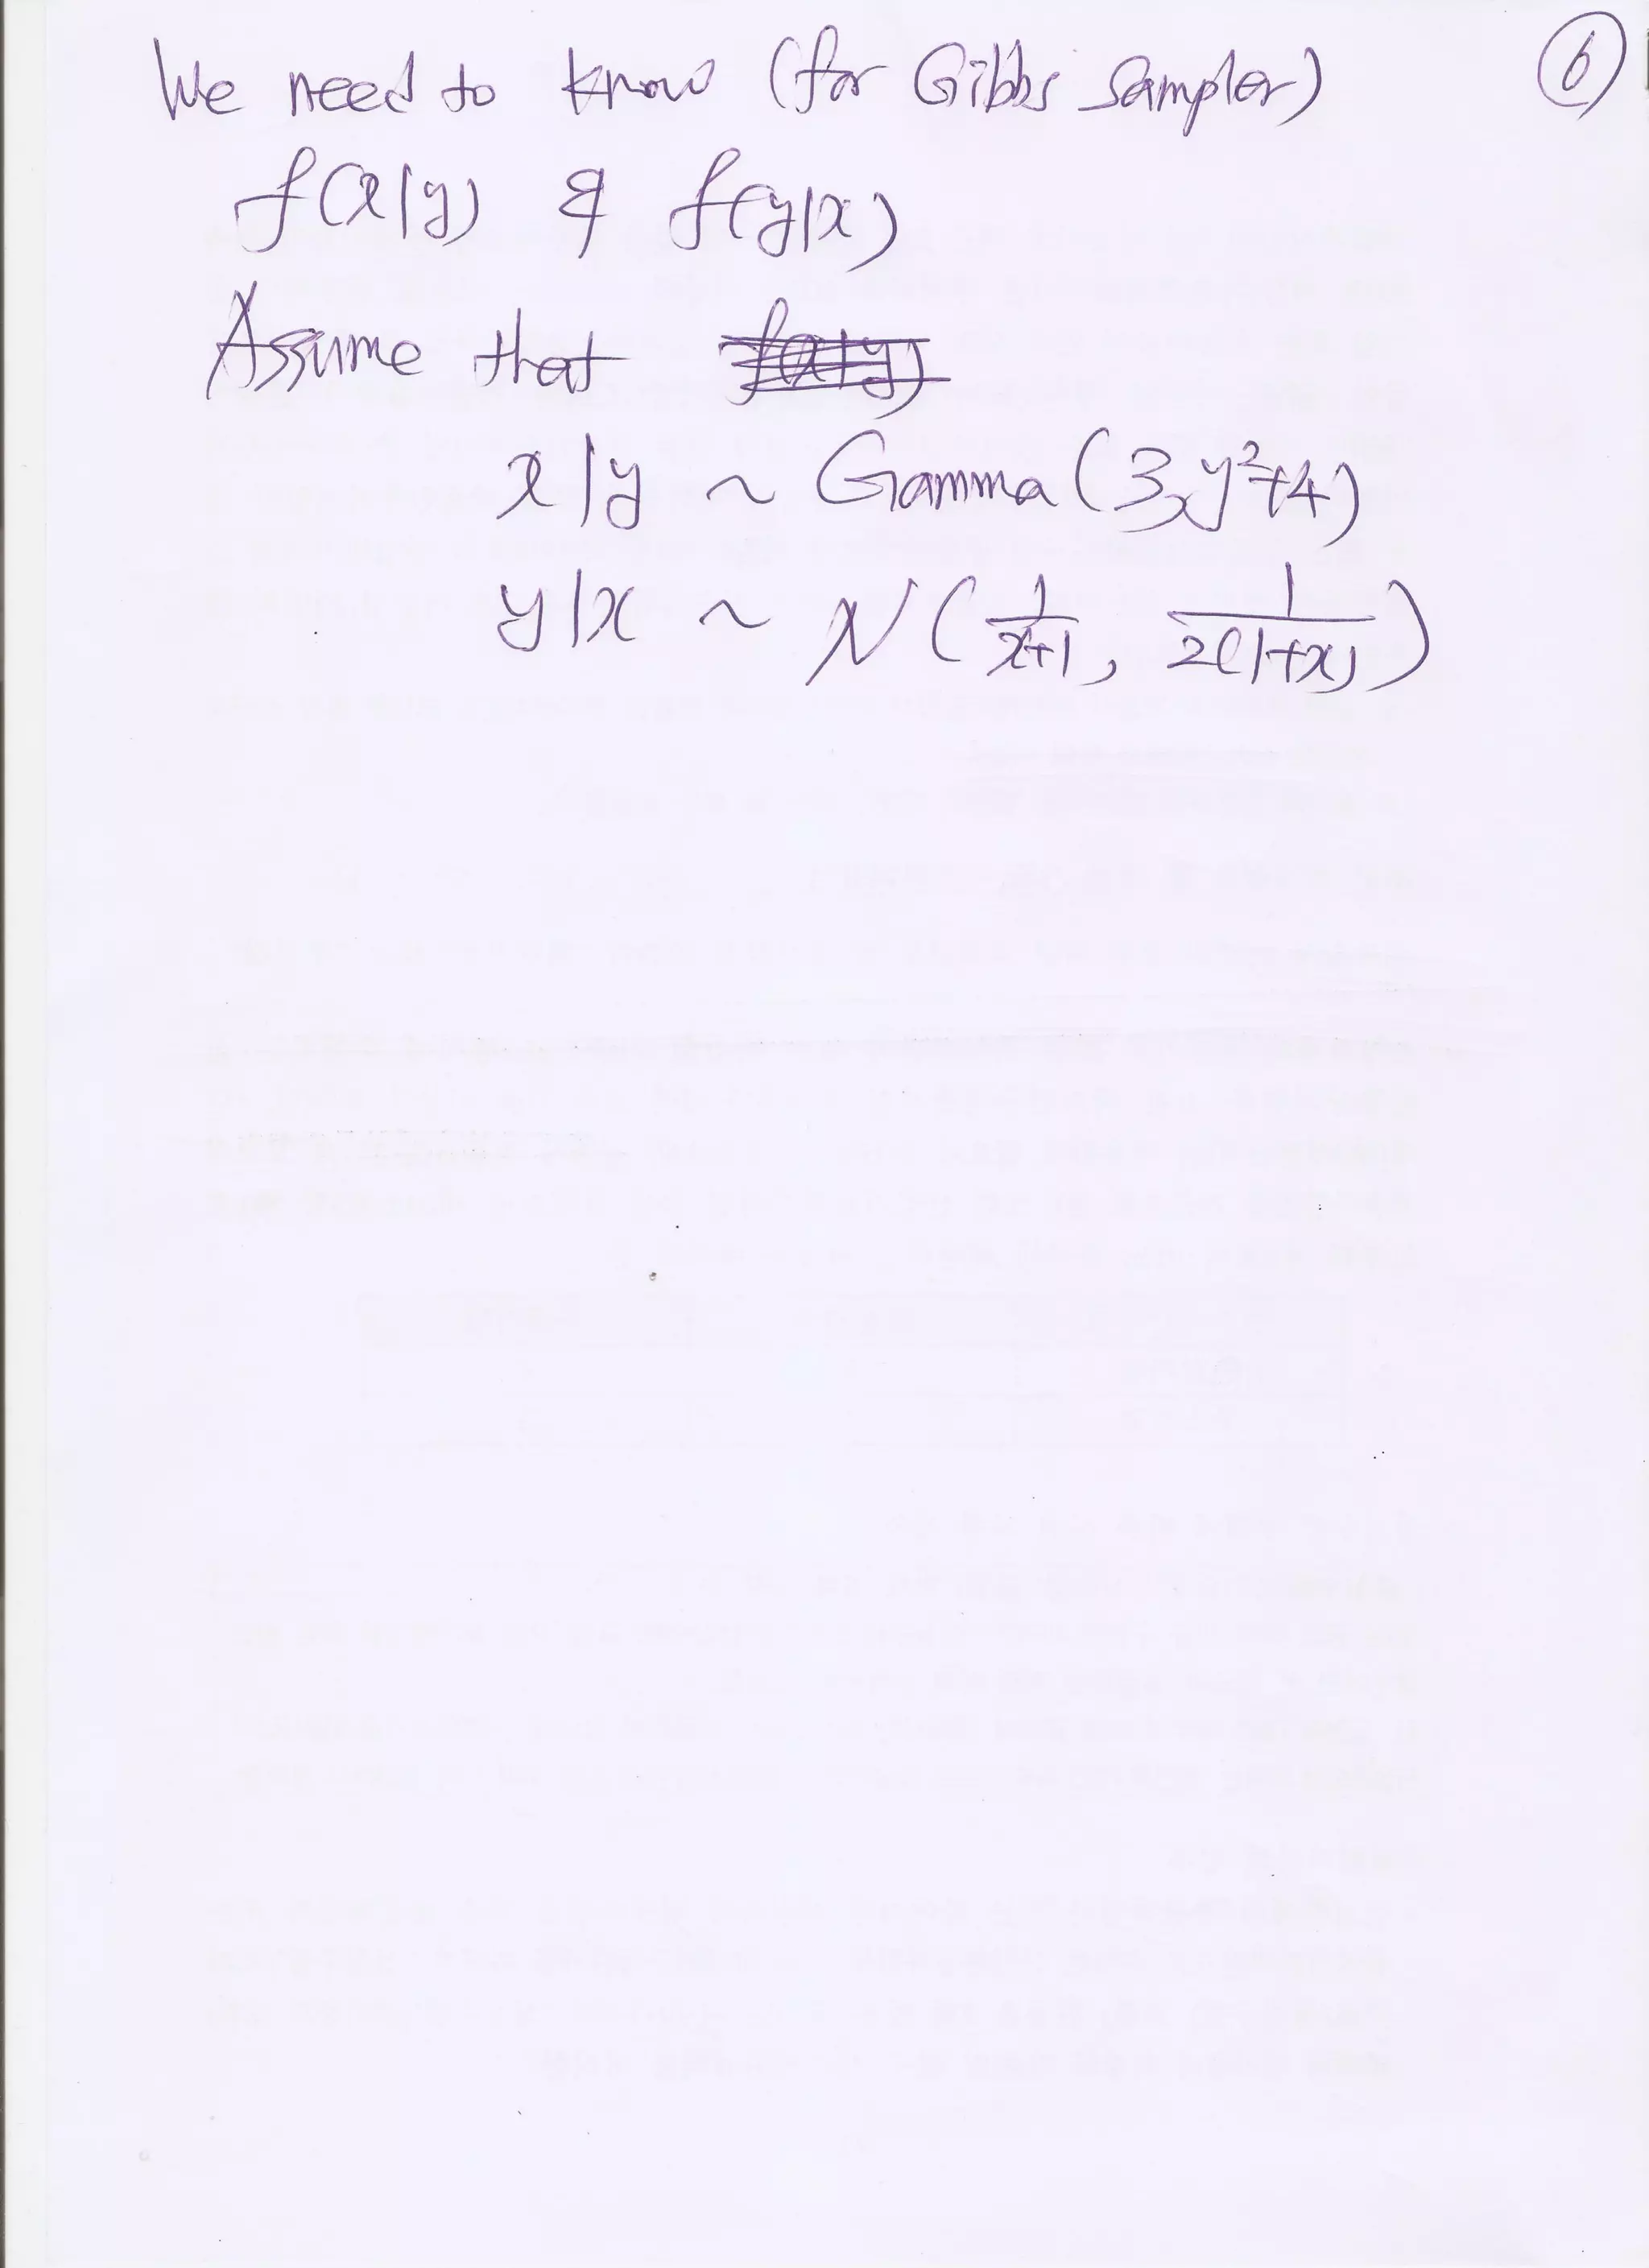 We need to know (for Gibbs Sampler) ⑥
f(x|y) & f(y|x)
Assume that
x|y ~ Gamma(3, y²+4)
y|x ~ N(1/(x+1), 1/(2(1+x)))